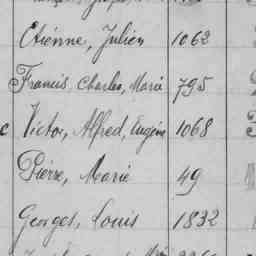 Etienne, Julien 1062
Francis, Charles, Marie 795
c Victor, Alfred, Eugène 1068
Pierre, Marie 49
Georges, Louis 1832